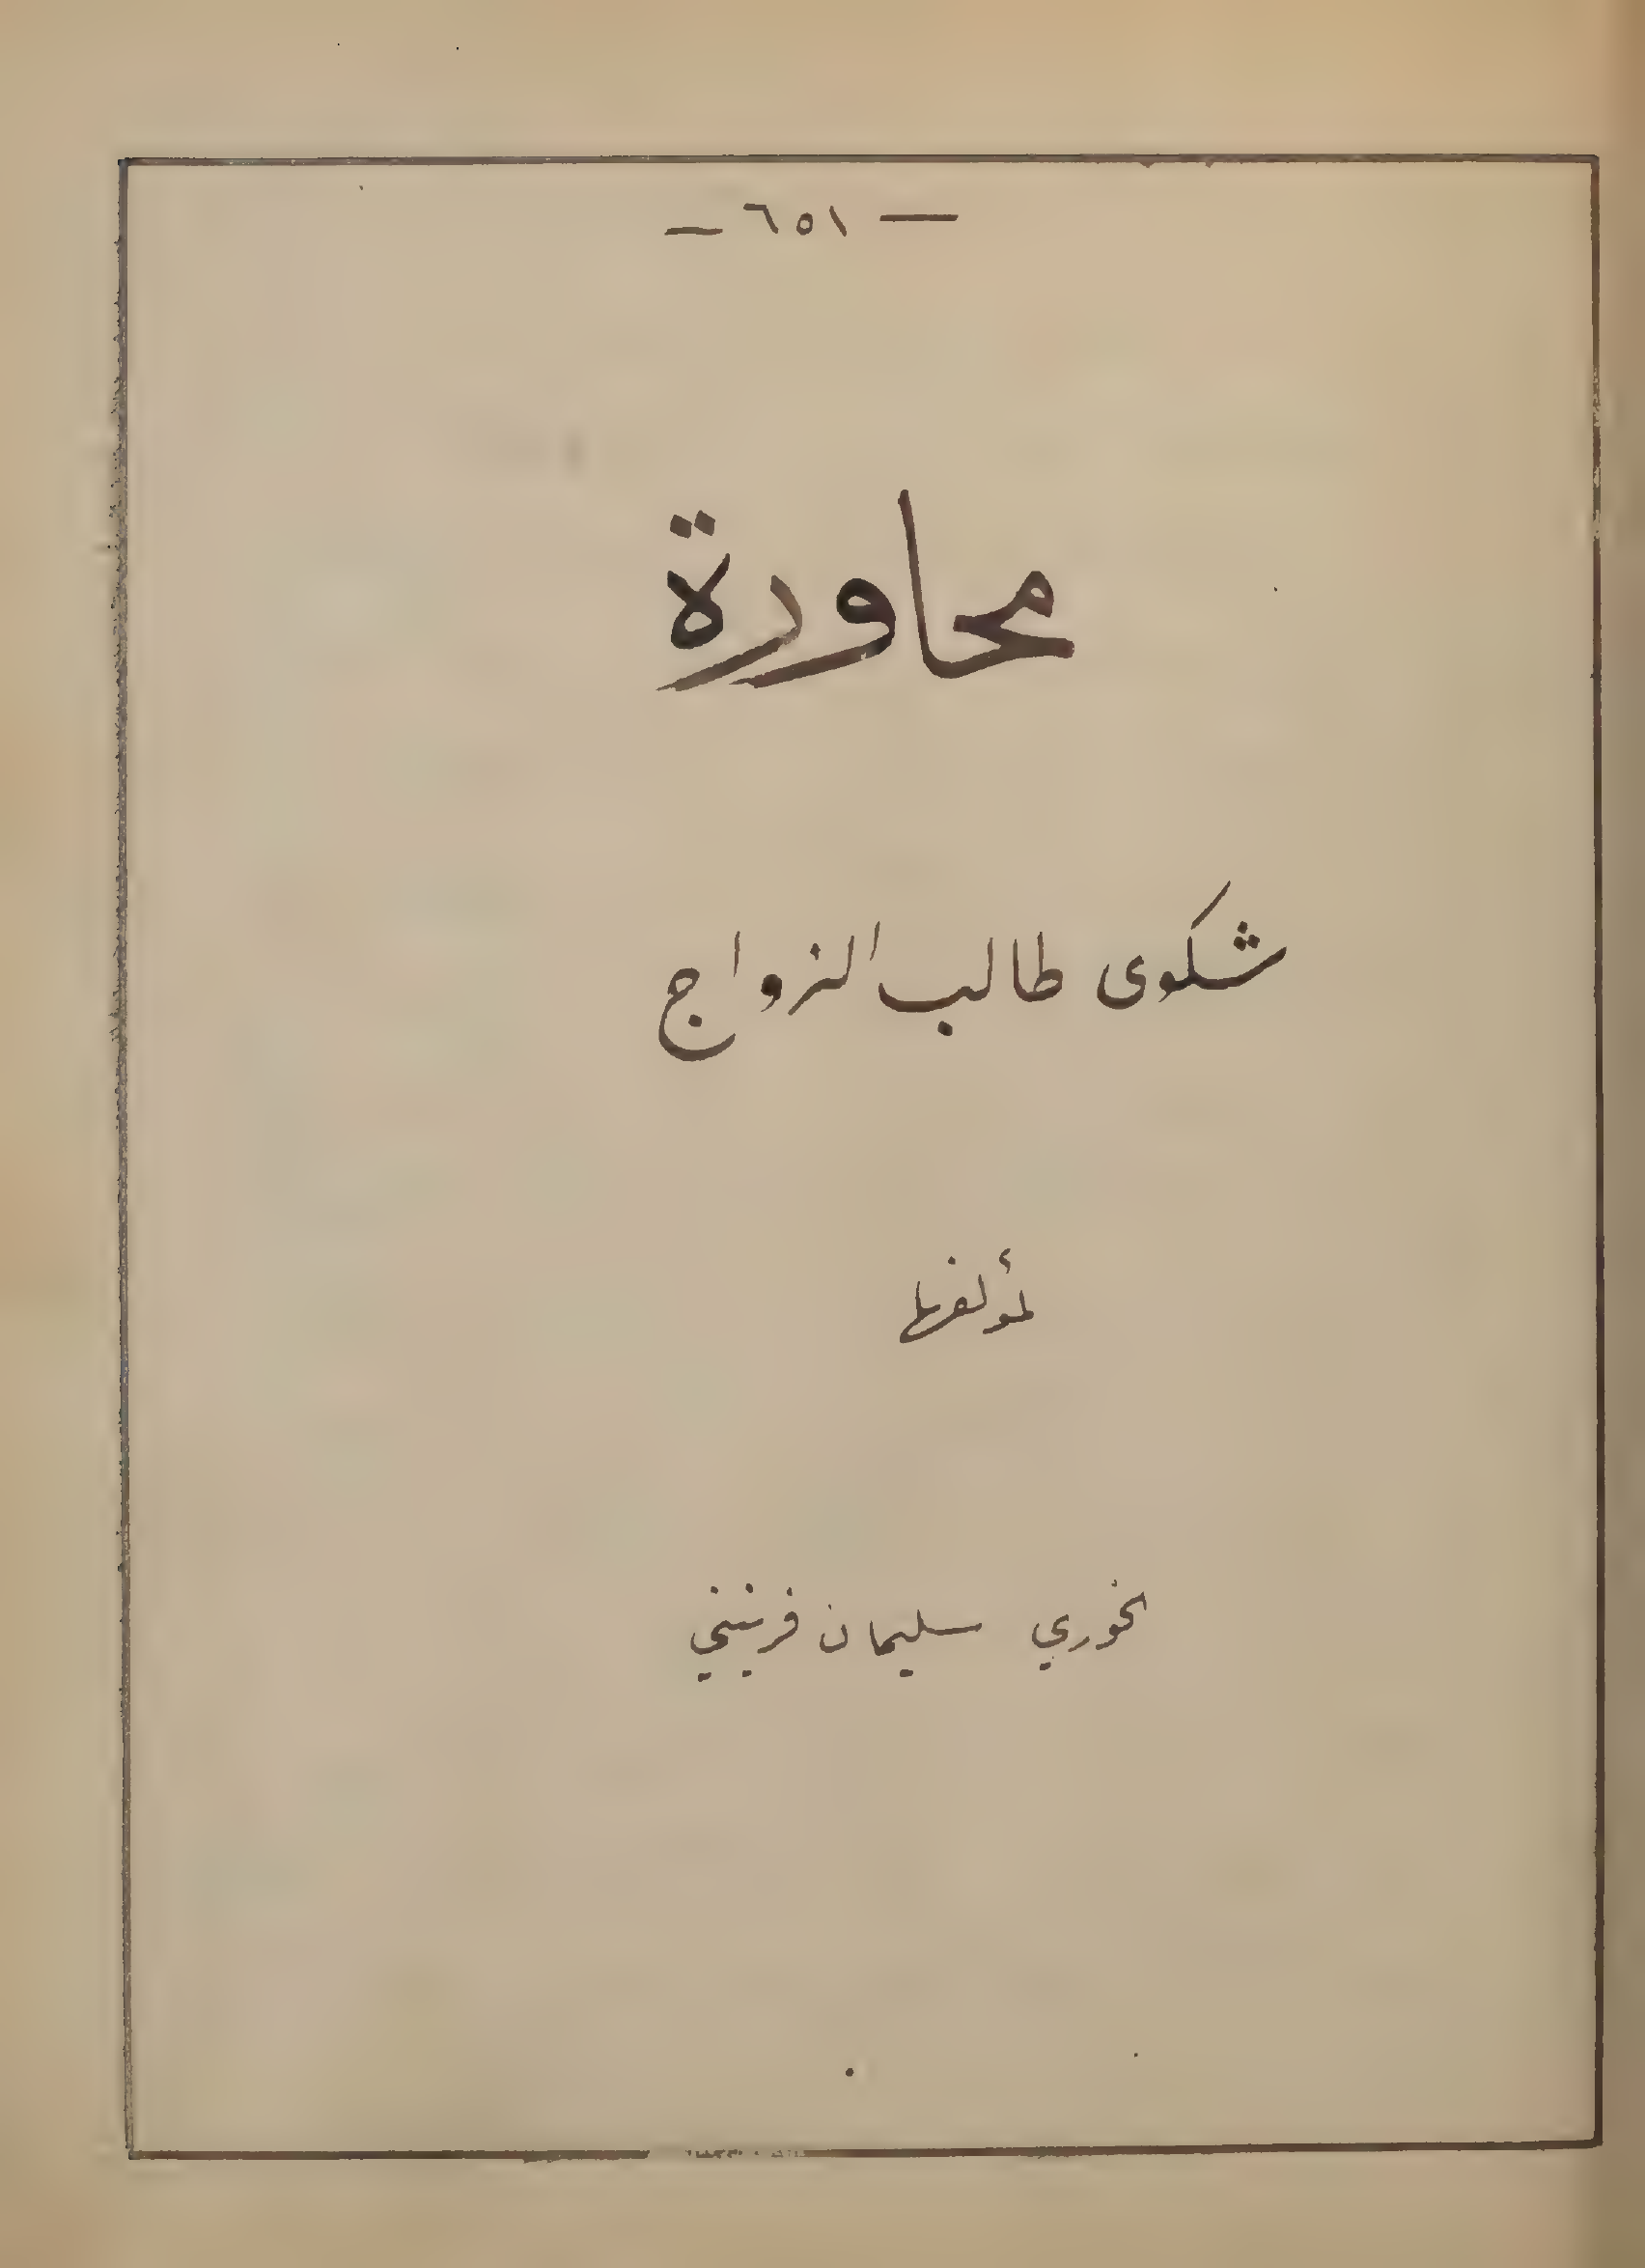 — ٦٥١ —
محاورة
شكوى طالب الزواج
لمؤلفها
الخوري سليمان فرنيني